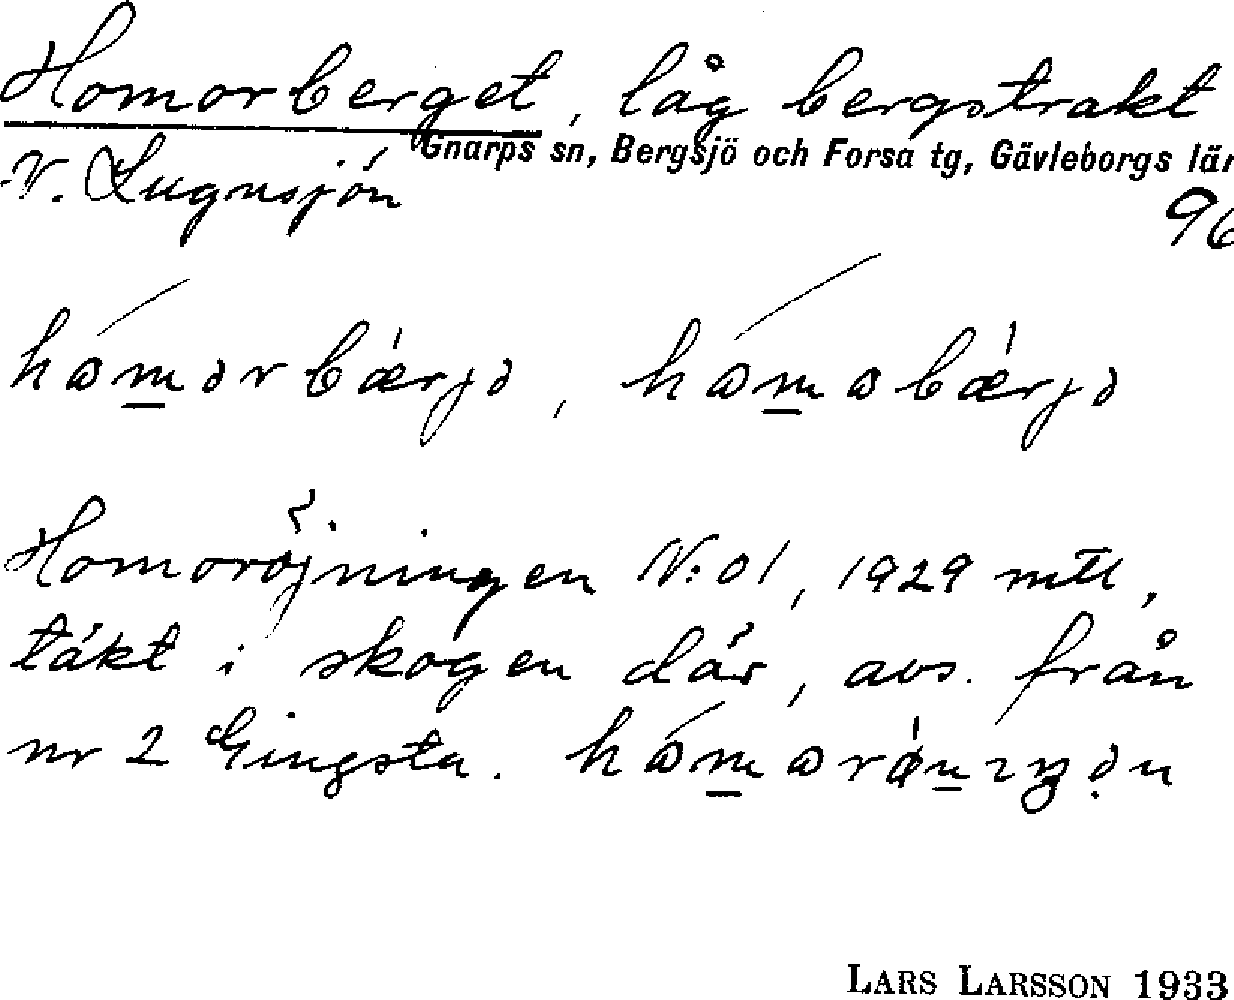 Homorberget, låg bergstrakt
Gnarps sn, Bergsjö och Forsa tg, Gävleborgs län
V. Lugnsjön
96
hómərbǽrjə, hómobǽrjə
Homoröjningen N:o 1, 1929 mtl,
täkt i skogen där, avs. från
nr 2 Gingsta. hómorǿnıŋən
LARS LARSSON 1933